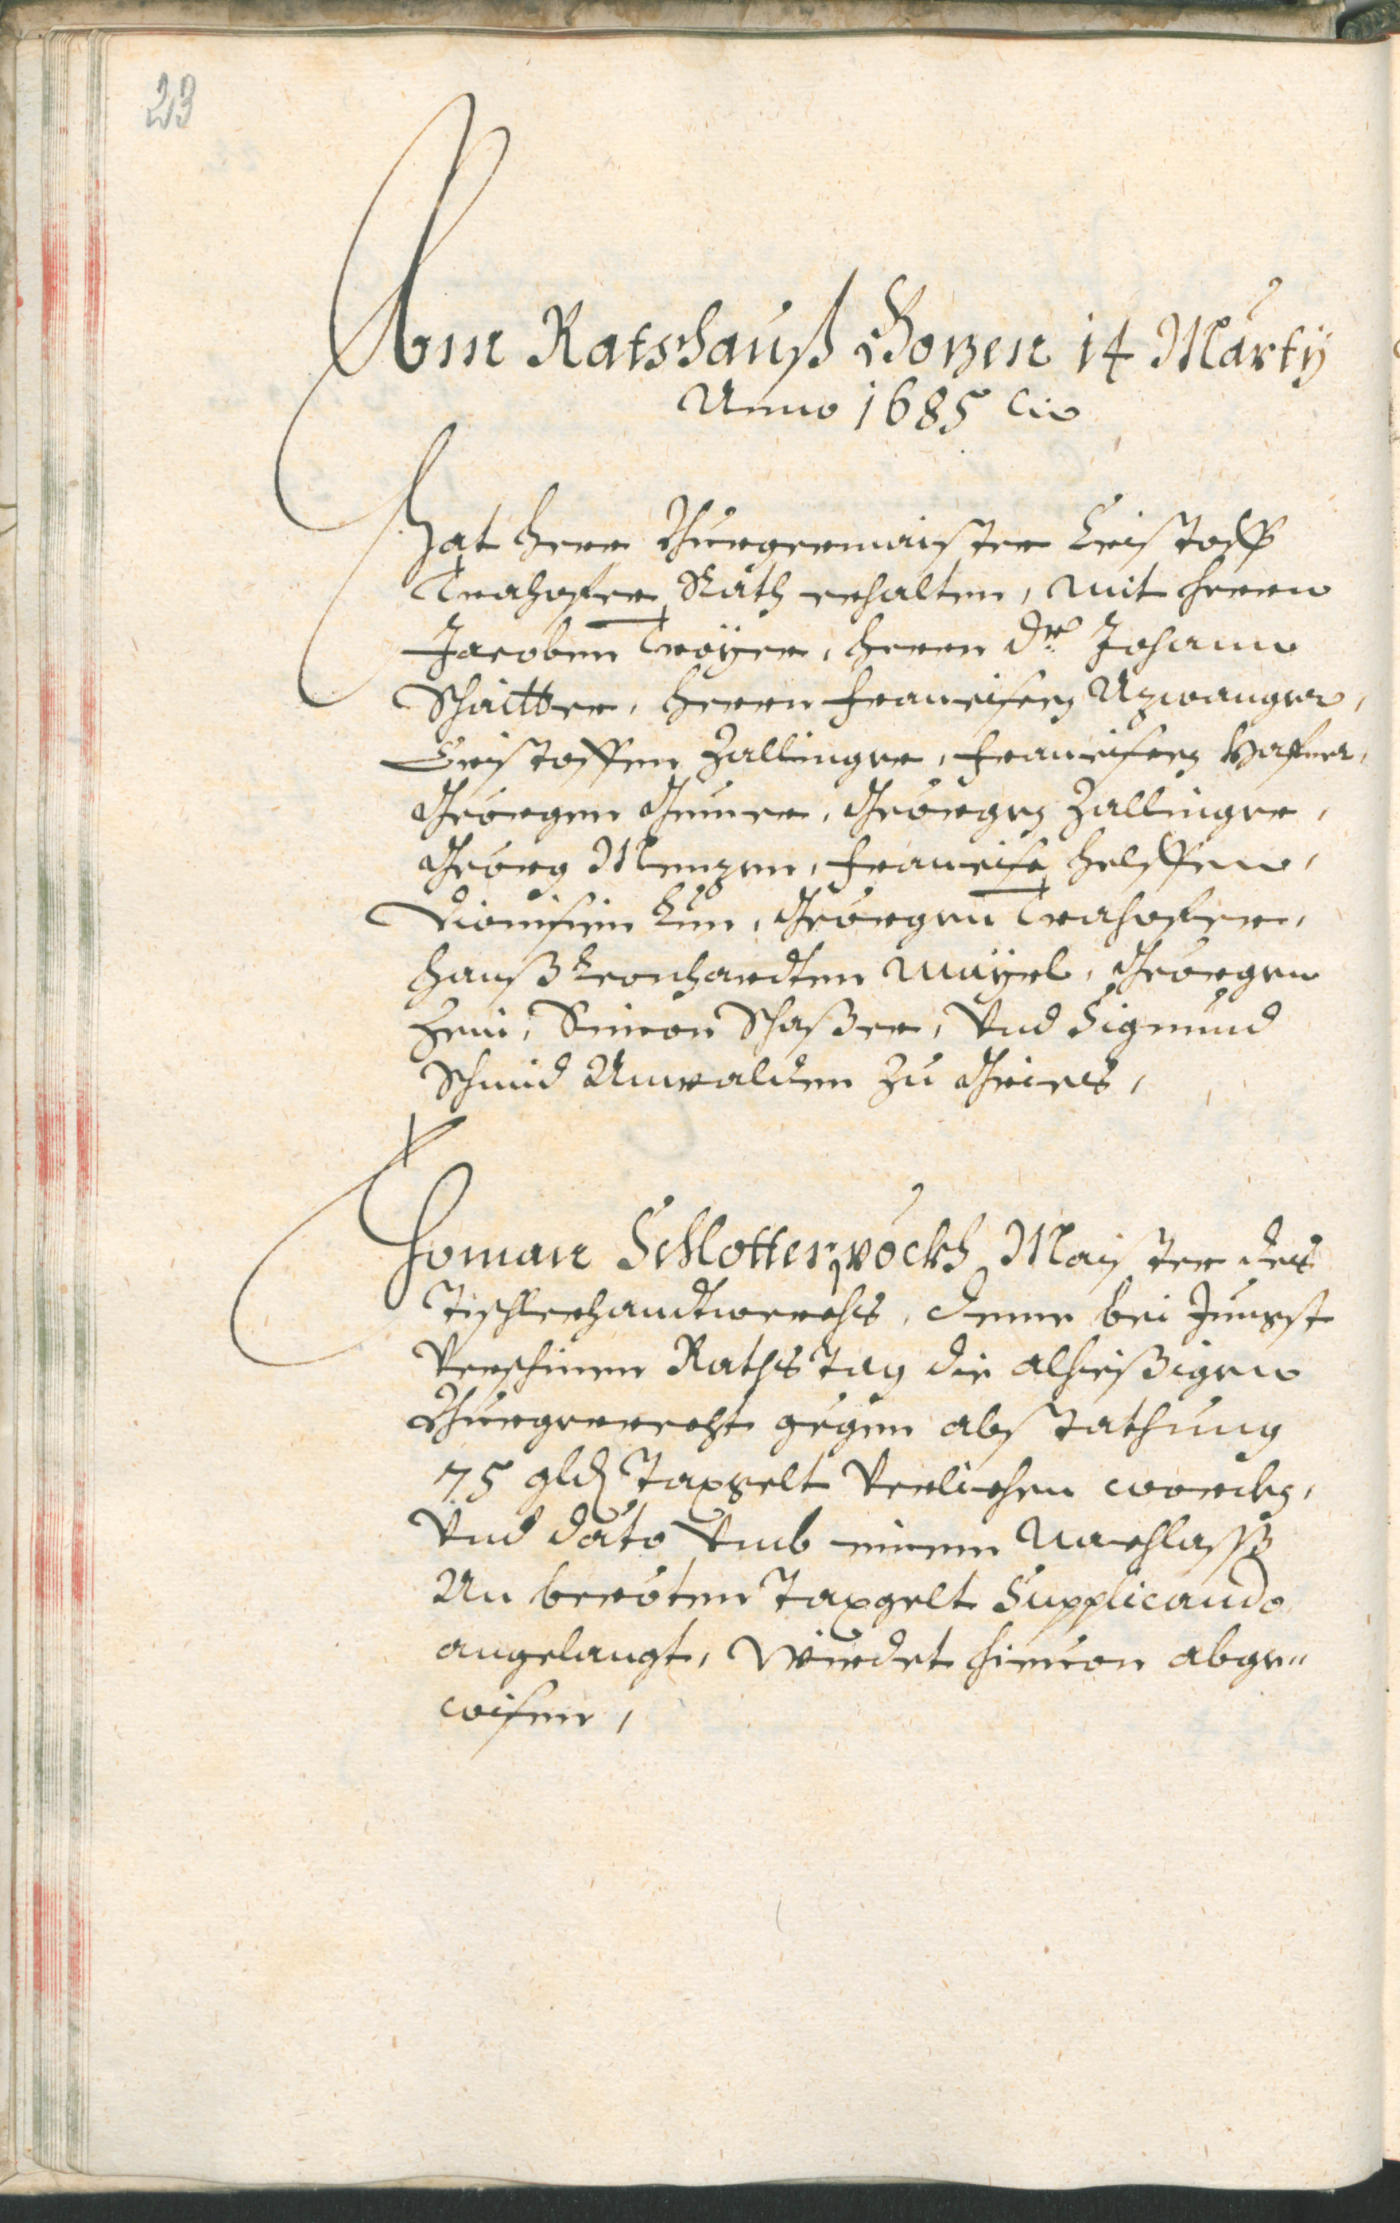 23
Am Ratshauß Bozen 14 Marty
Anno 1685 etc
Hat herr Burgermaister Cristoff
Trahofer, Rath gehalten, mit herrn
Jacoben Troÿer, herrn Dr Johann
Schaitter, herrn Francisen Azwanger,
Cristoffen Zallinger, Francisen Hafner,
Georgen Gumer, Georgen Zallinger,
Georg Menzen, Francisc helffen,
Dionisien Lun, Georgen Trahofer,
Hanß Leonhardten Maÿrl, Georgen
Simon Schaßer, Und Sigmund
Schmid Anwalden Zu Gries,
Thoman Schlotterpöckh Maister des
Tischlerhandtwerchs, deme bei Jungst
Verschinen Raths Tag die alhießigen
Burgerrecht gegen abstathung
75 gld Taxgelt Verlichen worden,
Und dato Umb einem Nachlaß
An bereoten Taxgelt Supplicando
angelangt, Würdet hieuon abge„
wisen,